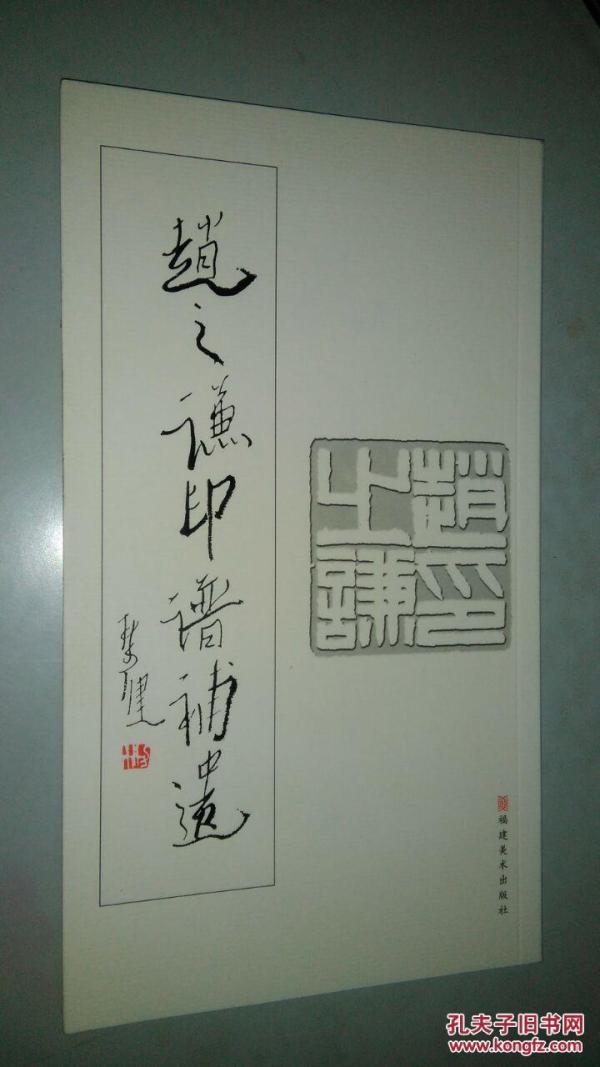 趙之謙印譜補遺
趙之謙印
福建美术出版社
孔夫子旧书网
www.kongfz.com